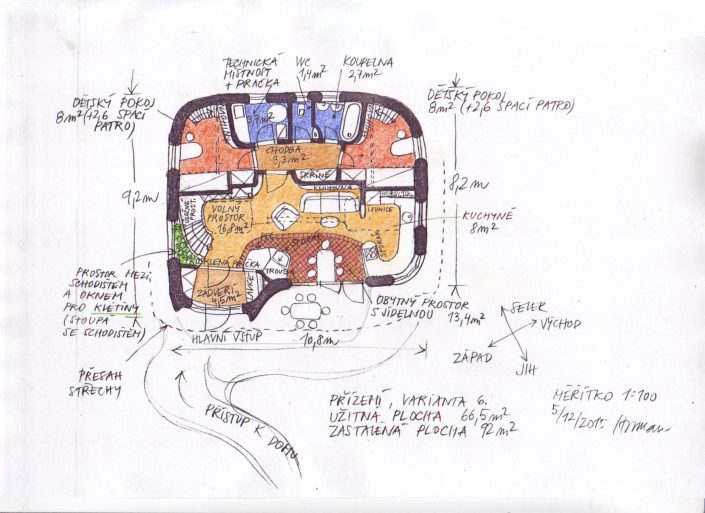 TECHNICKÁ
MÍSTNOST
+ PRAČKA
WC
1,4m²
KOUPELNA
2,7m²
DĚTSKÝ POKOJ
8m² (+2,6 SPACÍ
PATRO)
DĚTSKÝ POKOJ
8m² (+2,6 SPACÍ PATRO)
3,7m²
CHODBA
3,3m²
SKŘÍNĚ
KNIHOVNA
9,2m
8,2m
VOLNÝ
PROSTOR
16,8m²
LEDNICE
KUCHYNĚ
8m²
SPORÁK
PEC
TROUBA
ZÁDVEŘÍ
4,5m²
PROSTOR MEZI
SCHODIŠTĚM
A OKNEM
PRO KVĚTINY
(STOUPÁ
SE SCHODIŠTĚM)
OBYTNÝ PROSTOR
S JÍDELNOU
13,4m²
HLAVNÍ VSTUP
10,8m
SEVER
VÝCHOD
ZÁPAD
JIH
PŘESAH
STŘECHY
PŘÍSTUP K DOMU
PŘÍZEMÍ, VARIANTA 6.
UŽITNÁ PLOCHA 66,5m²
ZASTAVĚNÁ PLOCHA 92m²
MĚŘÍTKO 1:100
5/12/2015